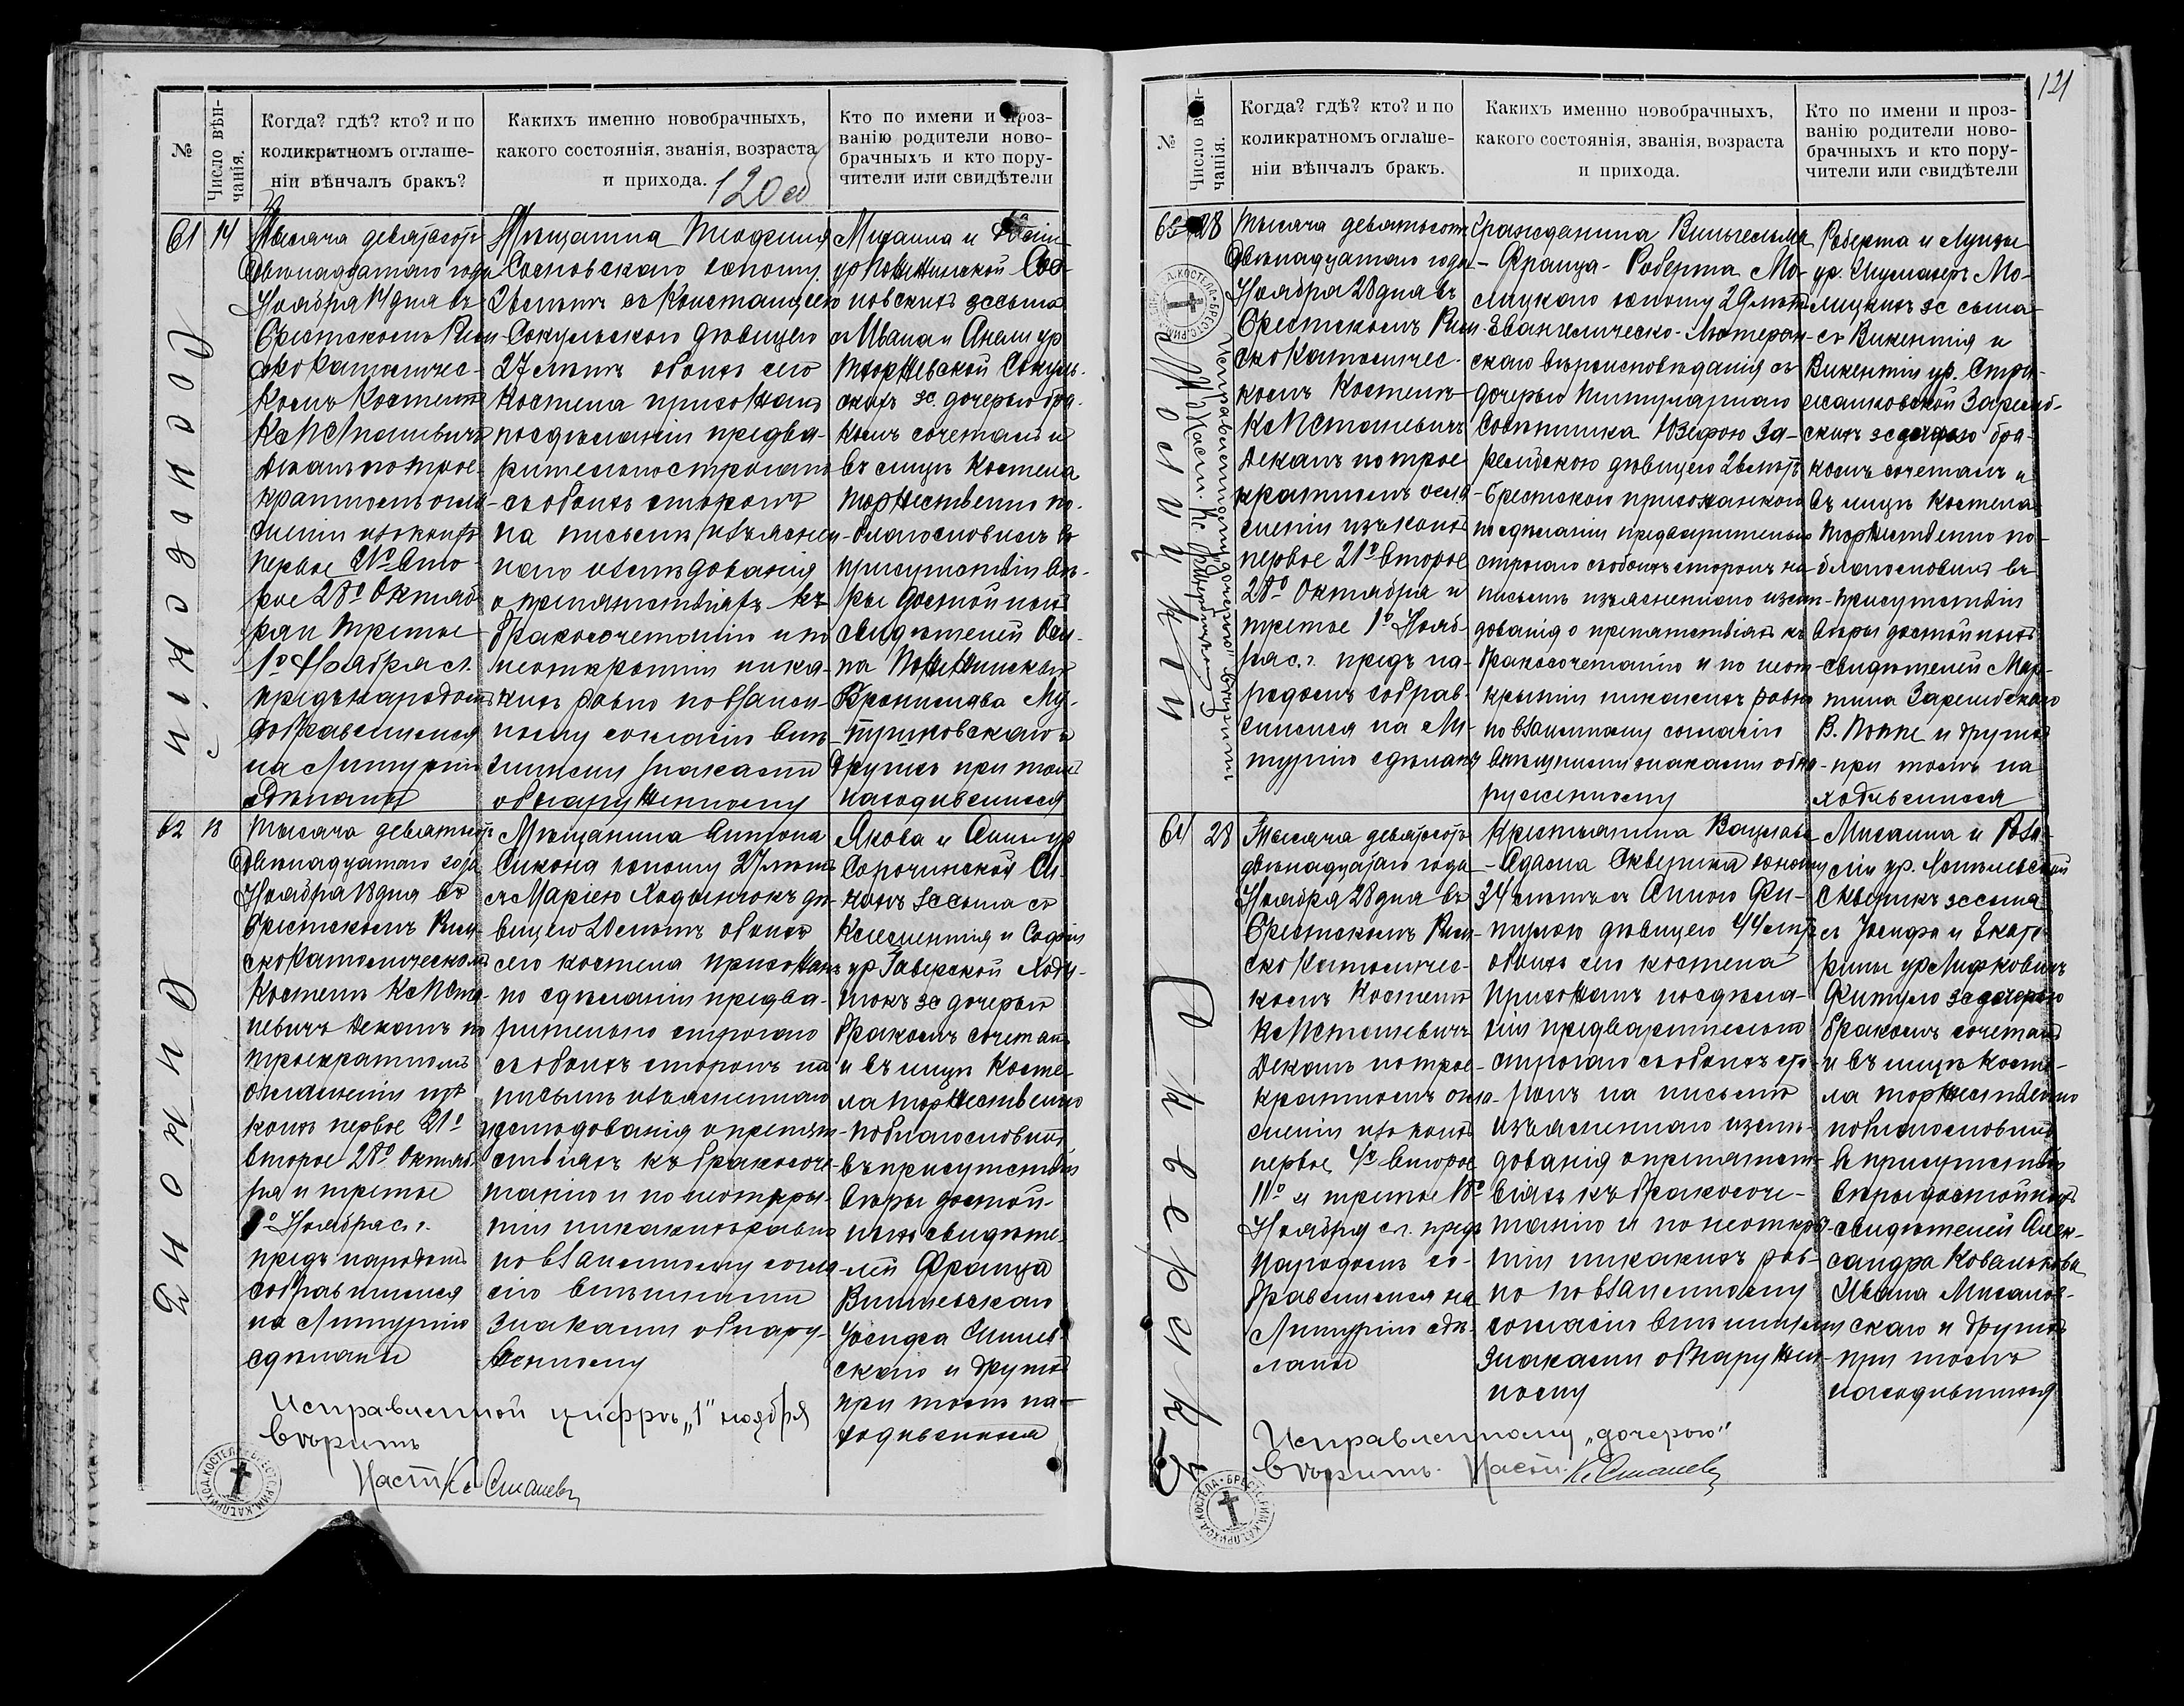 №
Число вѣн-
чанія.
Когда? гдѣ? кто? и по
коликратномъ оглаше-
ніи вѣнчалъ бракъ?
Какихъ именно новобрачныхъ,
какого состоянія, званія, возраста
и прихода.
120 об
Кто по имени и проз-
ванію родители ново-
брачныхъ и кто пору-
чители или свидѣтели
61
14
Сосновскій
Тысяча девятьсотъ
Двѣнадцатаго года
Ноября 14 дня въ
Брестскомъ Рим-
ско Католичес-
комъ Костелѣ
Деканъ по трое-
кратномъ огла-
шеніи изъ коихъ
первое 21º Вто-
рое 28º Октяб-
ря и третье
1º Ноября с.г.
предъ народомъ
собравшимся
на Литургію
сдѣланы
Мѣщанина Теофила
Сосновскаго юношу
лѣтъ съ Констанціею
Сокульскою дѣвицею
27 лѣтъ обоихъ сего
Костела прихожанъ
по сдѣланіи предва-
рительно строгаго
съ обоихъ сторонъ
на письмѣ изъяснен-
наго изслѣдованія
о препятствіяхъ къ
бракосочетанію и по
неоткрытіи ника-
кихъ равно по взаим-
ному согласію внѣ-
шними знаками
обнаруженному
Михаила и
ур Сос-
новскихъ зс сына
съ Ивана и Анны ур
Сокуль-
скихъ зс. дочерью бра-
комъ сочеталъ и
въ лицѣ Костела
торжественно по-
благословилъ въ
присутствіи вѣ-
ры достойныхъ
свидѣтелей Оси-
па
Бронислава Му-
трыковскаго и
другихъ при томъ
находившихся
62
18
Сикона
Тысяча девятьсотъ
Двѣнадцатаго года
Ноября 18 дня въ
Брестскомъ Рим-
ско Католическомъ
Костелѣ Кс П Ста-
невичъ Деканъ по
троекратномъ
оглашеніи изъ
коихъ первое 21º
второе 28º Октяб-
ря и третье
1º Ноября с.г.
предъ народомъ
собравшимся
на Литургію
сдѣланы
Мѣщанина Антона
Сикона юношу 27 лѣтъ
съ Маріею Ходынюкъ дѣ-
вицею 20 лѣтъ обоихъ
сего костела прихожанъ
по сдѣланіи предва-
рительно строгаго
съ обоихъ сторонъ на
письмѣ изъясненнаго
изслѣдованія о препят-
ствіяхъ къ бракосоче-
танію и по неоткры-
тіи никакихъ равно
по взаимному согла-
сію внѣшними
знаками обнару-
женному
Якова и Анны ур
Сорочинской Си-
конъ зс сына съ
Клементія и Софіи
ур Заверской Ходы-
нюкъ зс дочерью
бракомъ сочеталъ
и въ лицѣ Косте-
ла торжественно
поблагословилъ
въ присутствіи
вѣры достой-
ныхъ свидѣте-
лей Франца
Вишневскаго
Іосифа
скаго и другихъ
при томъ на-
ходившихся
Исправленной цифрѣ „1" ноября
вѣрить
Наст Кс Станевъ
121
№
Число вѣн-
чанія.
Когда? гдѣ? кто? и по
коликратномъ оглаше-
ніи вѣнчалъ бракъ.
Какихъ именно новобрачныхъ,
какого состоянія, званія, возраста
и прихода.
Кто по имени и проз-
ванію родители ново-
брачныхъ и кто пору-
чители или свидѣтели
63
28
Исправленному „дочерью" вѣрить
Наст. Кс.
Тысяча девятьсотъ
Двѣнадцатаго года
Ноября 28 дня въ
Брестскомъ Рим-
ско Католичес-
комъ Костелѣ
Кс П Станевичъ
Деканъ по трое-
кратномъ огла-
шеніи изъ коихъ
первое 21º второе
28º Октября и
третье 1º Нояб-
ря с.г. предъ на-
родомъ собрав-
шимся на Ли-
тургію сдѣланы
Гражданина Вильгельма
- Франца - Роберта Мо-
лицкаго юношу 29 лѣтъ
Евангелическо-Лютеран-
скаго вѣроисповѣданія съ
дочерью титулярнаго
Совѣтника Юзефою За-
рембскою дѣвицею 26 лѣтъ
Брестскою прихожанкою
по сдѣланіи предварительно
строгаго съ обоихъ сторонъ на
письмѣ изъясненнаго изслѣ-
дованія о препятствіяхъ къ
бракосочетанію и по неот-
крытіи никакихъ равно
по взаимному согласію
внѣшними знаками обна-
руженному
Роберта и Луизы
ур. Шумахеръ Мо-
лицкихъ зс сына
съ Викентія и
Викентіи ур. Стри-
жалковской Заремб-
скихъ зс дочерью бра-
комъ сочеталъ и
въ лицѣ Костела
торжественно по-
благословилъ въ
присутствіи
вѣры достойныхъ
свидѣтелей Мар-
тина Зарембскаго
В. Поппе и другихъ
при томъ на
ходившихся
64
28
Скверикъ
Тысяча девятьсотъ
двѣнадцатаго года
Ноября 28 дня въ
Брестскомъ Рим-
ско Католичес-
комъ Костелѣ
Кс П Станевичъ
Деканъ по трое-
кратномъ огла-
шеніи изъ коихъ
первое 4º второе
11º и третье 18º
Ноября с.г. предъ
народомъ со-
бравшимся на
Литургію сдѣ-
ланы
Крестьянина Вацлава
- Адама Скверика юношу
34 лѣтъ съ Анною Фи-
тулою дѣвицею 44 лѣтъ
обоихъ сего костела
прихожанъ по сдѣла-
ніи предварительно
строгаго съ обоихъ сто-
ронъ на письмѣ
изъясненнаго изслѣ-
дованія о препятст-
віяхъ къ бракосоче-
танію и по неоткры-
тіи никакихъ рав-
но по взаимному
согласію внѣшними
знаками обнаружен-
ному
Михаила и Роза-
ліи ур.
Скверикъ зс сына
съ Іосифа и Екате-
рины ур Мицкевичъ
Фитуло зс дочерью
бракомъ сочеталъ
и въ лицѣ Косте-
ла торжественно
поблагословилъ
въ присутствіи
вѣры достойныхъ
свидѣтелей Алек-
сандра Ковалькова
Ивана Михалов-
скаго и другихъ
при томъ
находившихся
Исправленному „дочерью"
вѣрить. Наст. Кс Станевъ